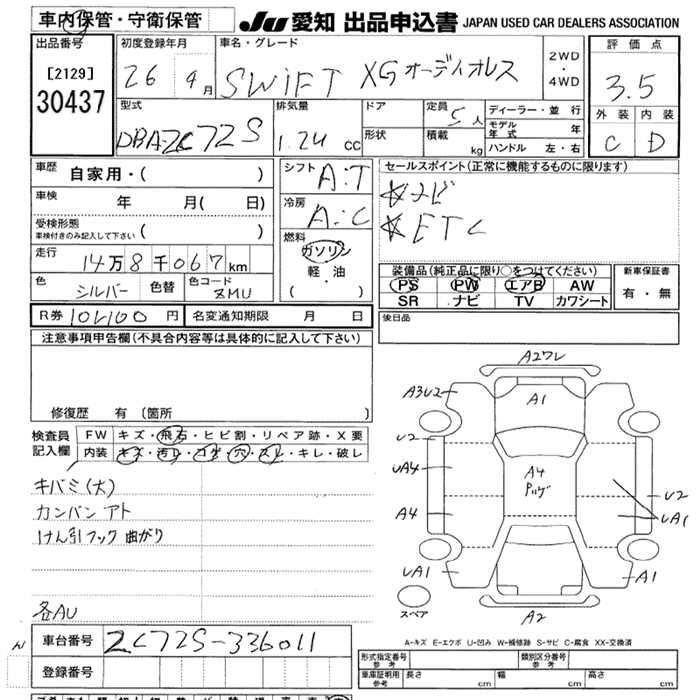 車内保管・守衛保管
JU 愛知 出品申込書 JAPAN USED CAR DEALERS ASSOCIATION
出品番号 初度登録年月 車名・グレード 2WD・4WD 評価点
[2129]
30437 26 9月 SWIFT XGオーディオレス 3.5
型式 排気量 ドア 定員 5人 ディーラー・並行 外装 内装
DBA-ZC72S 1.24 cc 形状 積載 kg モデル年式 年 C D
ハンドル 左・右
車歴 自家用・( ) シフト A:T セールスポイント(正常に機能するものに限ります)
車検 年 月( 日) 冷房 A:C ☆ナビ
受検形態 車検付きのみ記入して下さい ( ) 燃料 ☆ETC
走行 14万8千067km ガソリン
軽・油
( ・ )
装備品(純正品に限り○をつけてください) 新車保証書
色 シルバー 色替 色コード ZMU PS PW エアB AW 有・無
SR ナビ TV カワシート
R券 10100 円 名変通知期限 月 日 後日品
注意事項申告欄(不具合内容等は具体的に記入して下さい)
修復歴 有 〔箇所 〕
検査員記入欄 FW キズ・飛石・ヒビ割・リペア跡・X要
内装 キズ・汚レ・コゲ・穴・スレ・キレ・破レ
キバミ(大)
カンバン アト
けん引フック 曲がり
各AU
A2ワレ
A3U2 A1
U2
UA4 A4
U2
A4 UA1
UA1 A1
スペア A2
A-キズ E-エクボ U-凹み W-補修跡 S-サビ C-腐食 XX-交換済
車台番号 ZC72S-336011
登録番号
形式指定番号 参考 類別区分番号 参考
車庫証明用 参考 長さ 幅 高さ